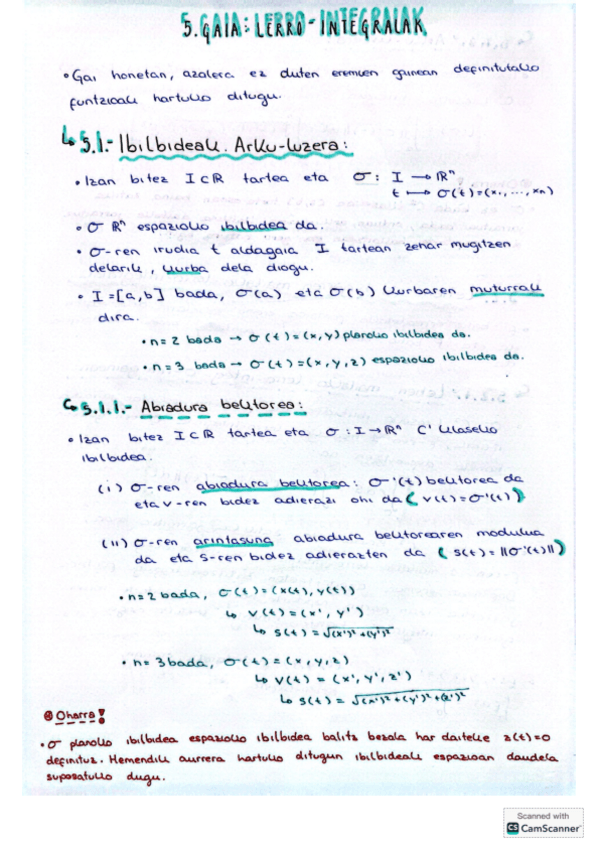 5. GAIA: LERRO-INTEGRALAK
• Gai honetan, azalera ez duten eremuen gainean definitutako
funtzioak hartuko ditugu.
↳ 5.1.- Ibilbideak. Arku-luzera:
• Izan bitez I⊂ℝ tartea eta σ: I → ℝⁿ
t ↦ σ(t)=(x₁, ..., xₙ)
• σ ℝⁿ espazioko ibilbidea da.
• σ-ren irudia t aldagaia I tartean zehar mugitzen
delarik, kurba dela diogu.
• I=[a,b] bada, σ(a) eta σ(b) kurbaren muturrak
dira.
• n=2 bada → σ(t)=(x,y) planoko ibilbidea da.
• n=3 bada → σ(t)=(x,y,z) espazioko ibilbidea da.
↳ 5.1.1.- Abiadura bektorea:
• Izan bitez I⊂ℝ tartea eta σ: I→ℝⁿ C' klaseko
ibilbidea.
(i) σ-ren abiadura bektorea: σ'(t) bektorea da
eta v-ren bidez adierazi ohi da (v(t)=σ'(t))
(ii) σ-ren arintasuna abiadura bektorearen modulua
da eta s-ren bidez adierazten da (s(t)=||σ'(t)||)
• n=2 bada, σ(t)=(x(t), y(t))
↳ v(t)=(x', y')
↳ s(t)=√(x')²+(y')²
• n=3 bada, σ(t)=(x,y,z)
↳ v(t)=(x', y', z')
↳ s(t)=√(x')²+(y')²+(z')²
⊛ Oharra!
• σ planoko ibilbidea espazioko ibilbidea balitz bezala har daiteke z(t)=0
definituz. Hemendik aurrera hartuko ditugun ibilbideak espazioan daudela
suposatuko dugu.
Scanned with
CS CamScanner